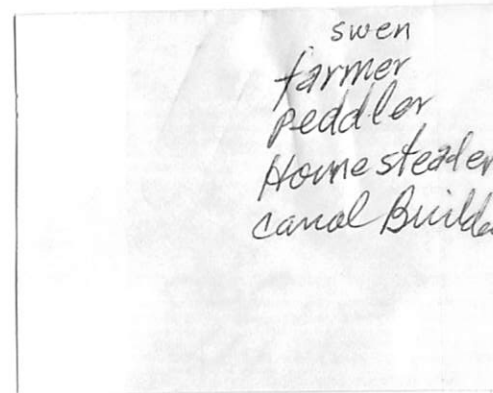 swen
farmer
Peddler
Homesteader
Canal Builde